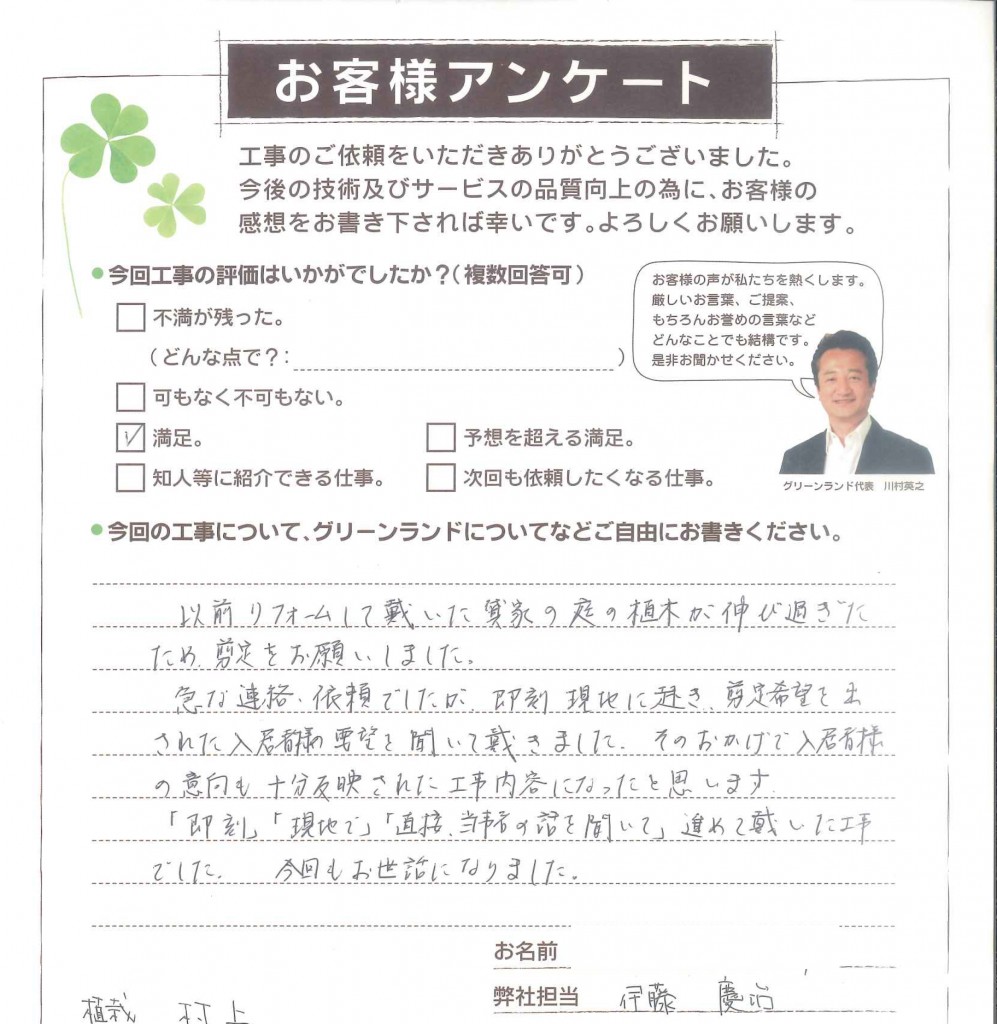 お客様アンケート
工事のご依頼をいただきありがとうございました。
今後の技術及びサービスの品質向上の為に、お客様の
感想をお書き下されば幸いです。よろしくお願いします。
●今回工事の評価はいかがでしたか？（複数回答可）
お客様の声が私たちを熱くします。
厳しいお言葉、ご提案、
もちろんお誉めの言葉など
どんなことでも結構です。
是非お聞かせください。
不満が残った。
（どんな点で？： ）
可もなく不可もない。
満足。 予想を超える満足。
知人等に紹介できる仕事。 次回も依頼したくなる仕事。
グリーンランド代表 川村英之
●今回の工事について、グリーンランドについてなどご自由にお書きください。
以前リフォームして戴いた貸家の庭の植木が伸び過ぎた
ため、剪定をお願いしました。
急な連絡、依頼でしたが、即刻現地に赴き、剪定希望を出
された入居者様の要望を聞いて戴きました。そのおかげで入居者様
の意向も十分反映された工事内容になったと思います。
「即刻」「現地で」「直接、当事者の話を聞いて」進めて戴いた工事
でした。 今回もお世話になりました。
お名前
弊社担当 伊藤 慶治
植栽 村上